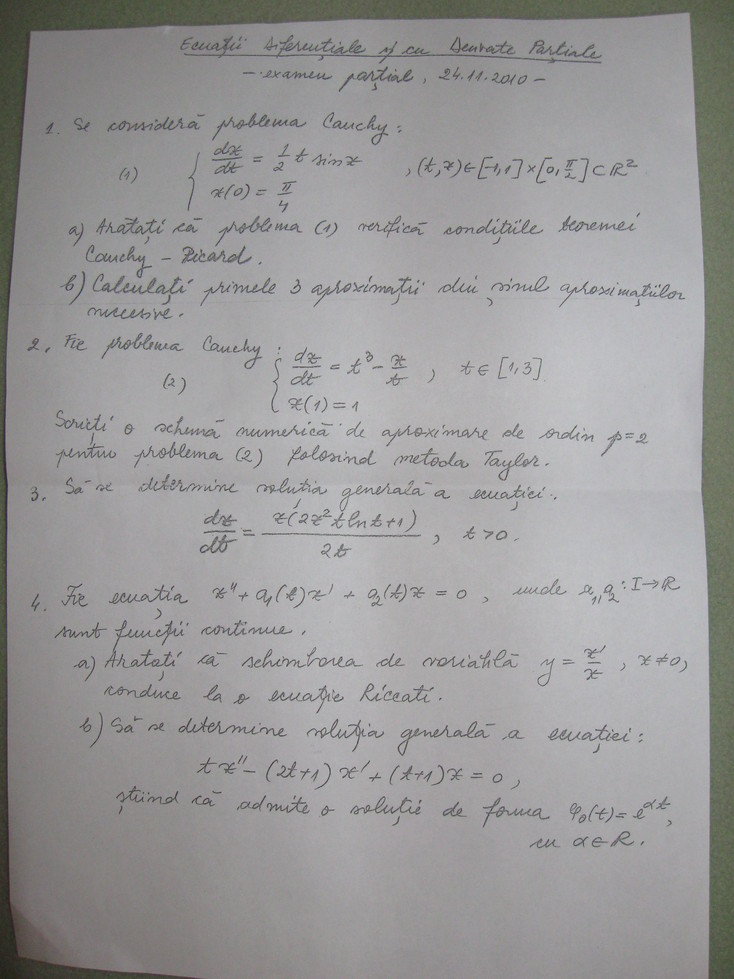 Ecuații Diferențiale și cu Derivate Parțiale
- examen parțial, 24.11.2010 -
1. Se consideră problema Cauchy:
(1) { dx/dt = 1/2 t sin x , (t,x) ∈ [-1,1] × [0, π/2] ⊂ ℝ²
x(0) = π/4
a) Arătați că problema (1) verifică condițiile teoremei
Cauchy - Picard.
b) Calculați primele 3 aproximații din șirul aproximațiilor
succesive.
2. Fie problema Cauchy:
(2) { dx/dt = t³ - x/t , t ∈ [1,3]
x(1) = 1
Scrieți o schemă numerică de aproximare de ordin p=2
pentru problema (2) folosind metoda Taylor.
3. Să se determine soluția generală a ecuației:
dx/dt = x(2x² t ln t + 1) / 2t , t > 0.
4. Fie ecuația x'' + a₁(t)x' + a₂(t)x = 0 , unde a₁,a₂ : I → ℝ
sunt funcții continue.
a) Arătați că schimbarea de variabilă y = x'/x , x ≠ 0,
conduce la o ecuație Riccati.
b) Să se determine soluția generală a ecuației:
t x'' - (2t+1) x' + (t+1) x = 0 ,
știind că admite o soluție de forma φ₀(t) = e^{αt},
cu α ∈ ℝ.